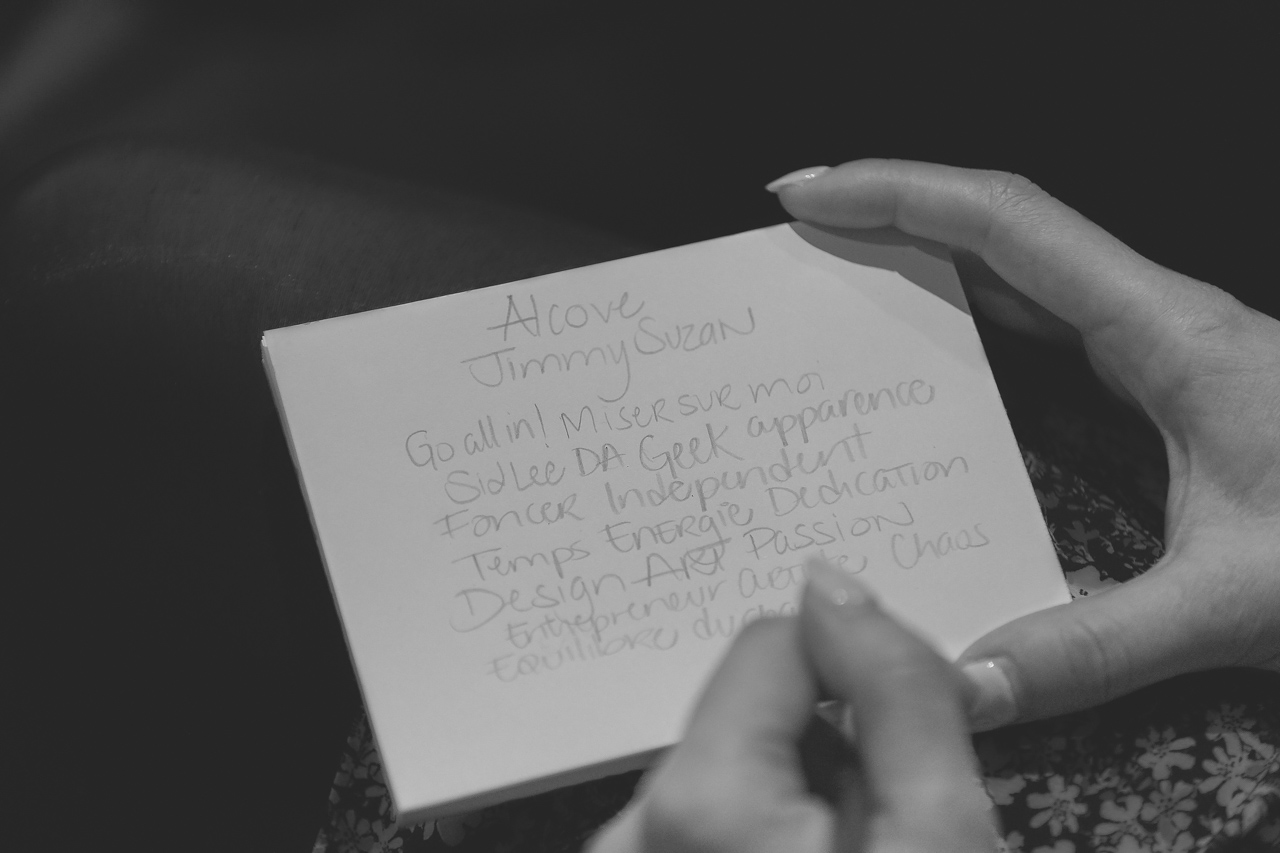 Alcove
Jimmy Suzan
Go all in! Miser sur moi
Sid Lee DA Geek apparence
Foncer Independent
Temps Energie Dedication
Design Art Passion
Entrepreneur artiste Chaos
Equilibre du